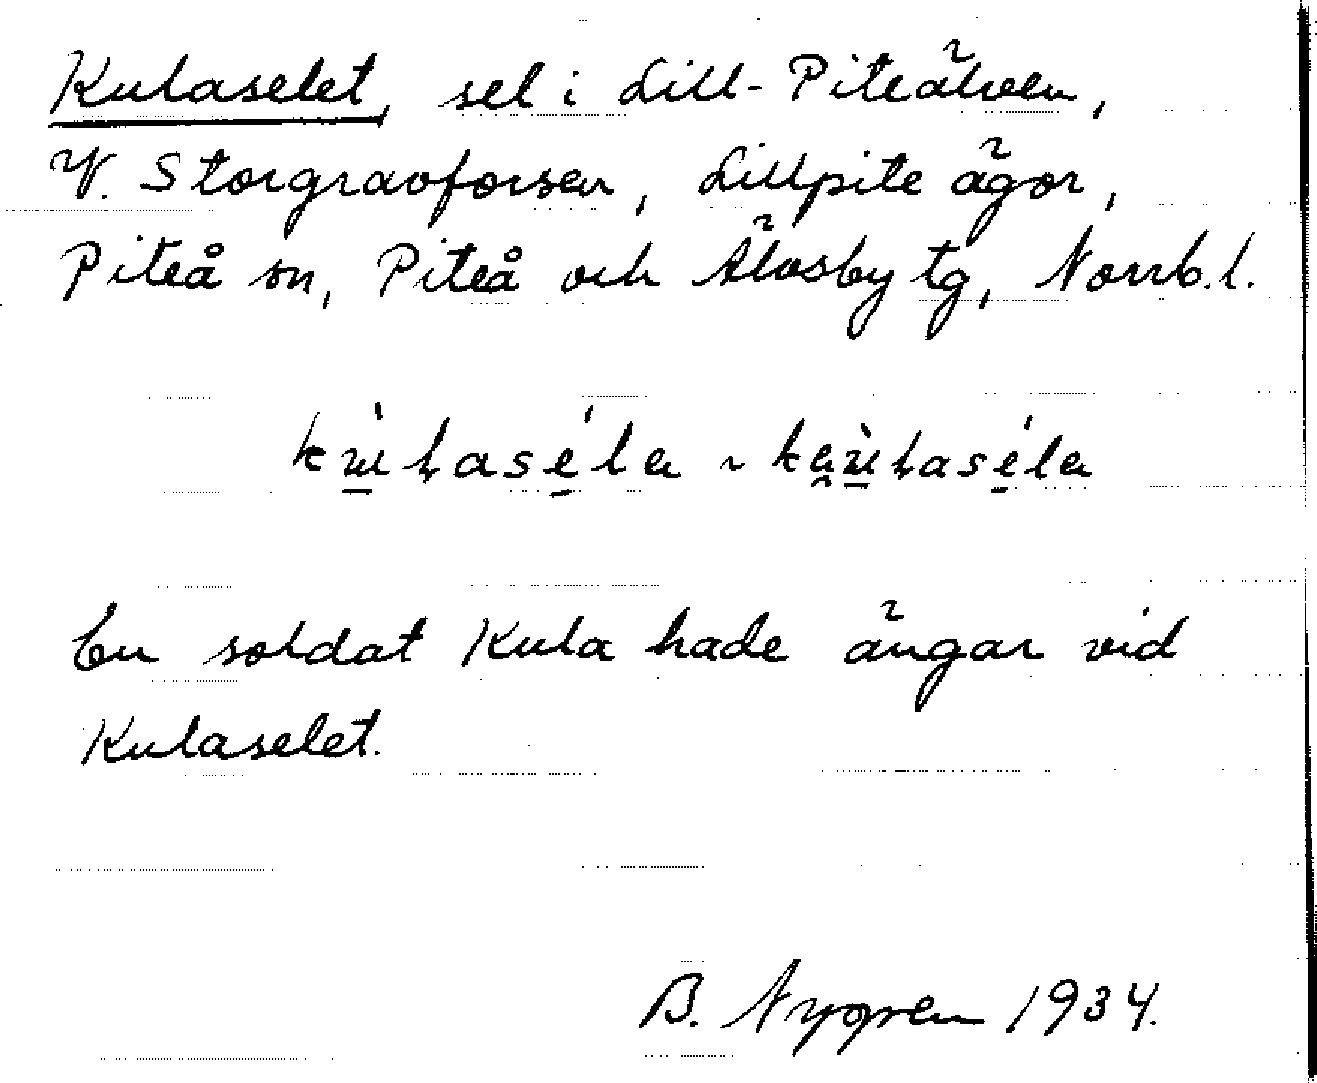 Kulaselet, sel i Lill-Piteälven,
V. Storgravforsen, Lillpite ägor,
Piteå sn, Piteå och Älvsby tg, Norrb.l.
En soldat Kula hade ängar vid
Kulaselet.
B. Nygren 1934.